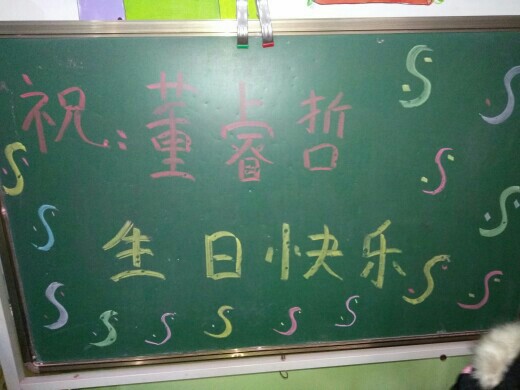 祝:董睿哲
生日快乐